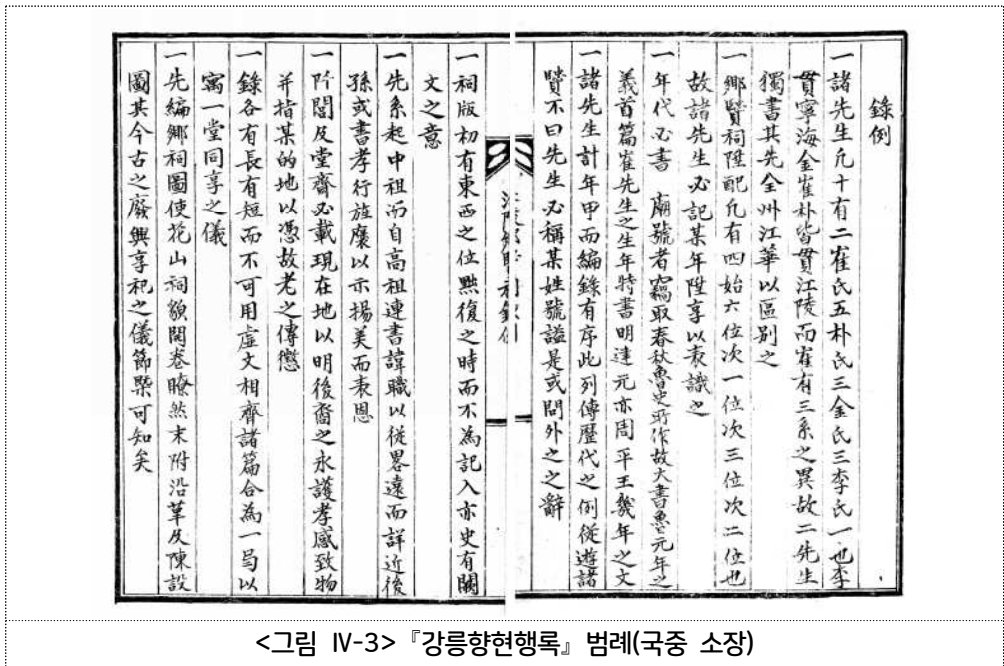 錄例
一諸先生凡十有二崔氏五朴氏三金氏三李氏一也李
貫寧海金崔朴皆貫江陵而崔有三系之異故二先生
獨書其先全州江華以區別之
一鄉賢祠陞配凡有四始六位次一位次三位次二位也
故諸先生必記某年陞享以表識之
一年代必書 廟號者竊取春秋魯史所作故大書魯元年之
義首篇崔先生之生年特書明達元亦周平王幾年之文
一諸先生計年甲而編錄有序此列傳歷代之例從遊諸
賢不曰先生必稱某姓號謚是或問外之之辭
一祠版初有東西之位黜復之時而不為記入亦史有闕
文之意
一先系起中祖而自高祖連書諱職以從畧遠而詳近後
孫或書孝行旌褒以示揚美而表恩
一阡閭及堂齋必載現在地以明後裔之永護孝感致物
并指某的地以憑故老之傳懲
一錄各有長有短而不可用虛文相齊諸篇合為一局以
寓一堂同享之儀
一先編鄉祠圖使花山祠貌開卷瞭然末附沿革及陳設
圖其今古之廢興享祀之儀節槩可知矣
<그림 Ⅳ-3>『강릉향현행록』 범례(국중 소장)